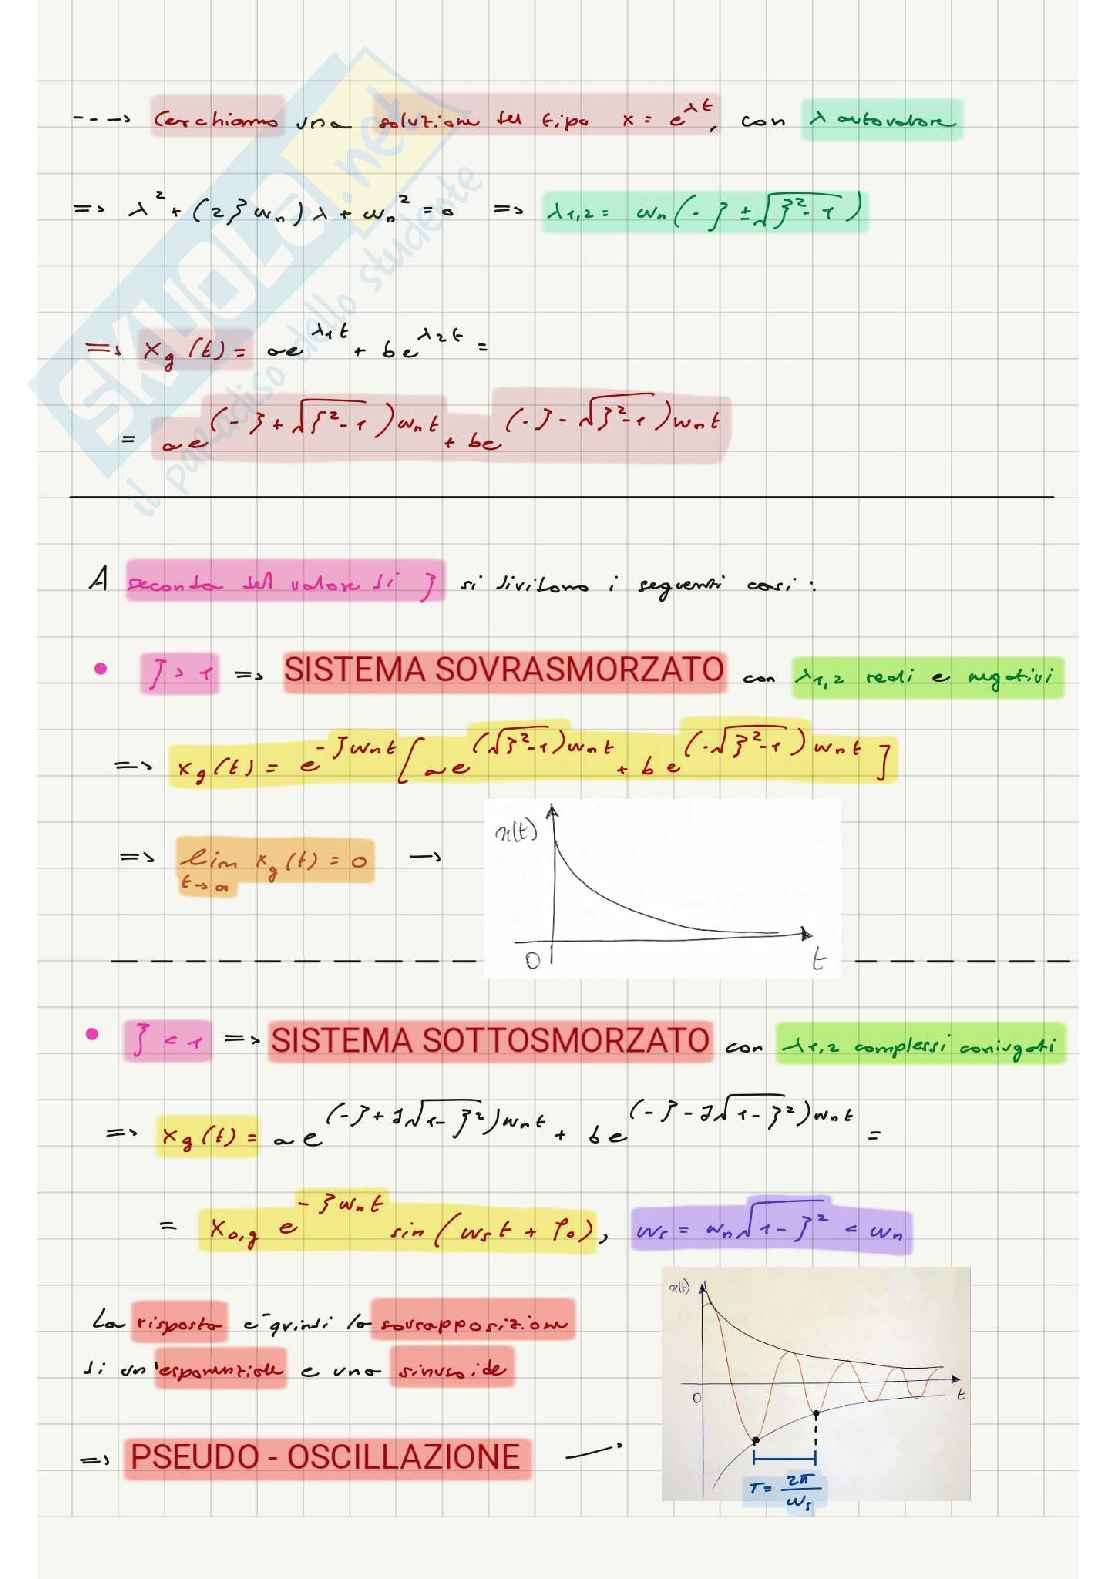 ---> Cerchiamo una soluzione del tipo x = e^{λt}, con λ autovalore
=> λ² + (2ζωn)λ + ωn² = 0 => λ1,2 = ωn(-ζ ± √(ζ²-1))
=> xg(t) = ae^{λ1t} + be^{λ2t} =
= ae^{(-ζ+√(ζ²-1))ωnt} + be^{(-ζ-√(ζ²-1))ωnt}
A seconda del valore di ζ si dividono i seguenti casi:
• ζ > 1 => SISTEMA SOVRASMORZATO con λ1,2 reali e negativi
=> xg(t) = e^{-ζωnt}[ae^{(√(ζ²-1))ωnt} + be^{(-√(ζ²-1))ωnt}]
=> lim xg(t) = 0 →
t→∞
x(t)
0 t
• ζ < 1 => SISTEMA SOTTOSMORZATO con λ1,2 complessi coniugati
=> xg(t) = ae^{(-ζ+j√(1-ζ²))ωnt} + be^{(-ζ-j√(1-ζ²))ωnt} =
= x0,g e^{-ζωnt} sin(ωst + φ0), ωs = ωn√(1-ζ²) < ωn
La risposta è quindi la sovrapposizione
di un'esponenziale e una sinusoide
=> PSEUDO - OSCILLAZIONE →
x(t)
0 t
T = 2π/ωs
SKUOLA.net
il paradiso dello studente